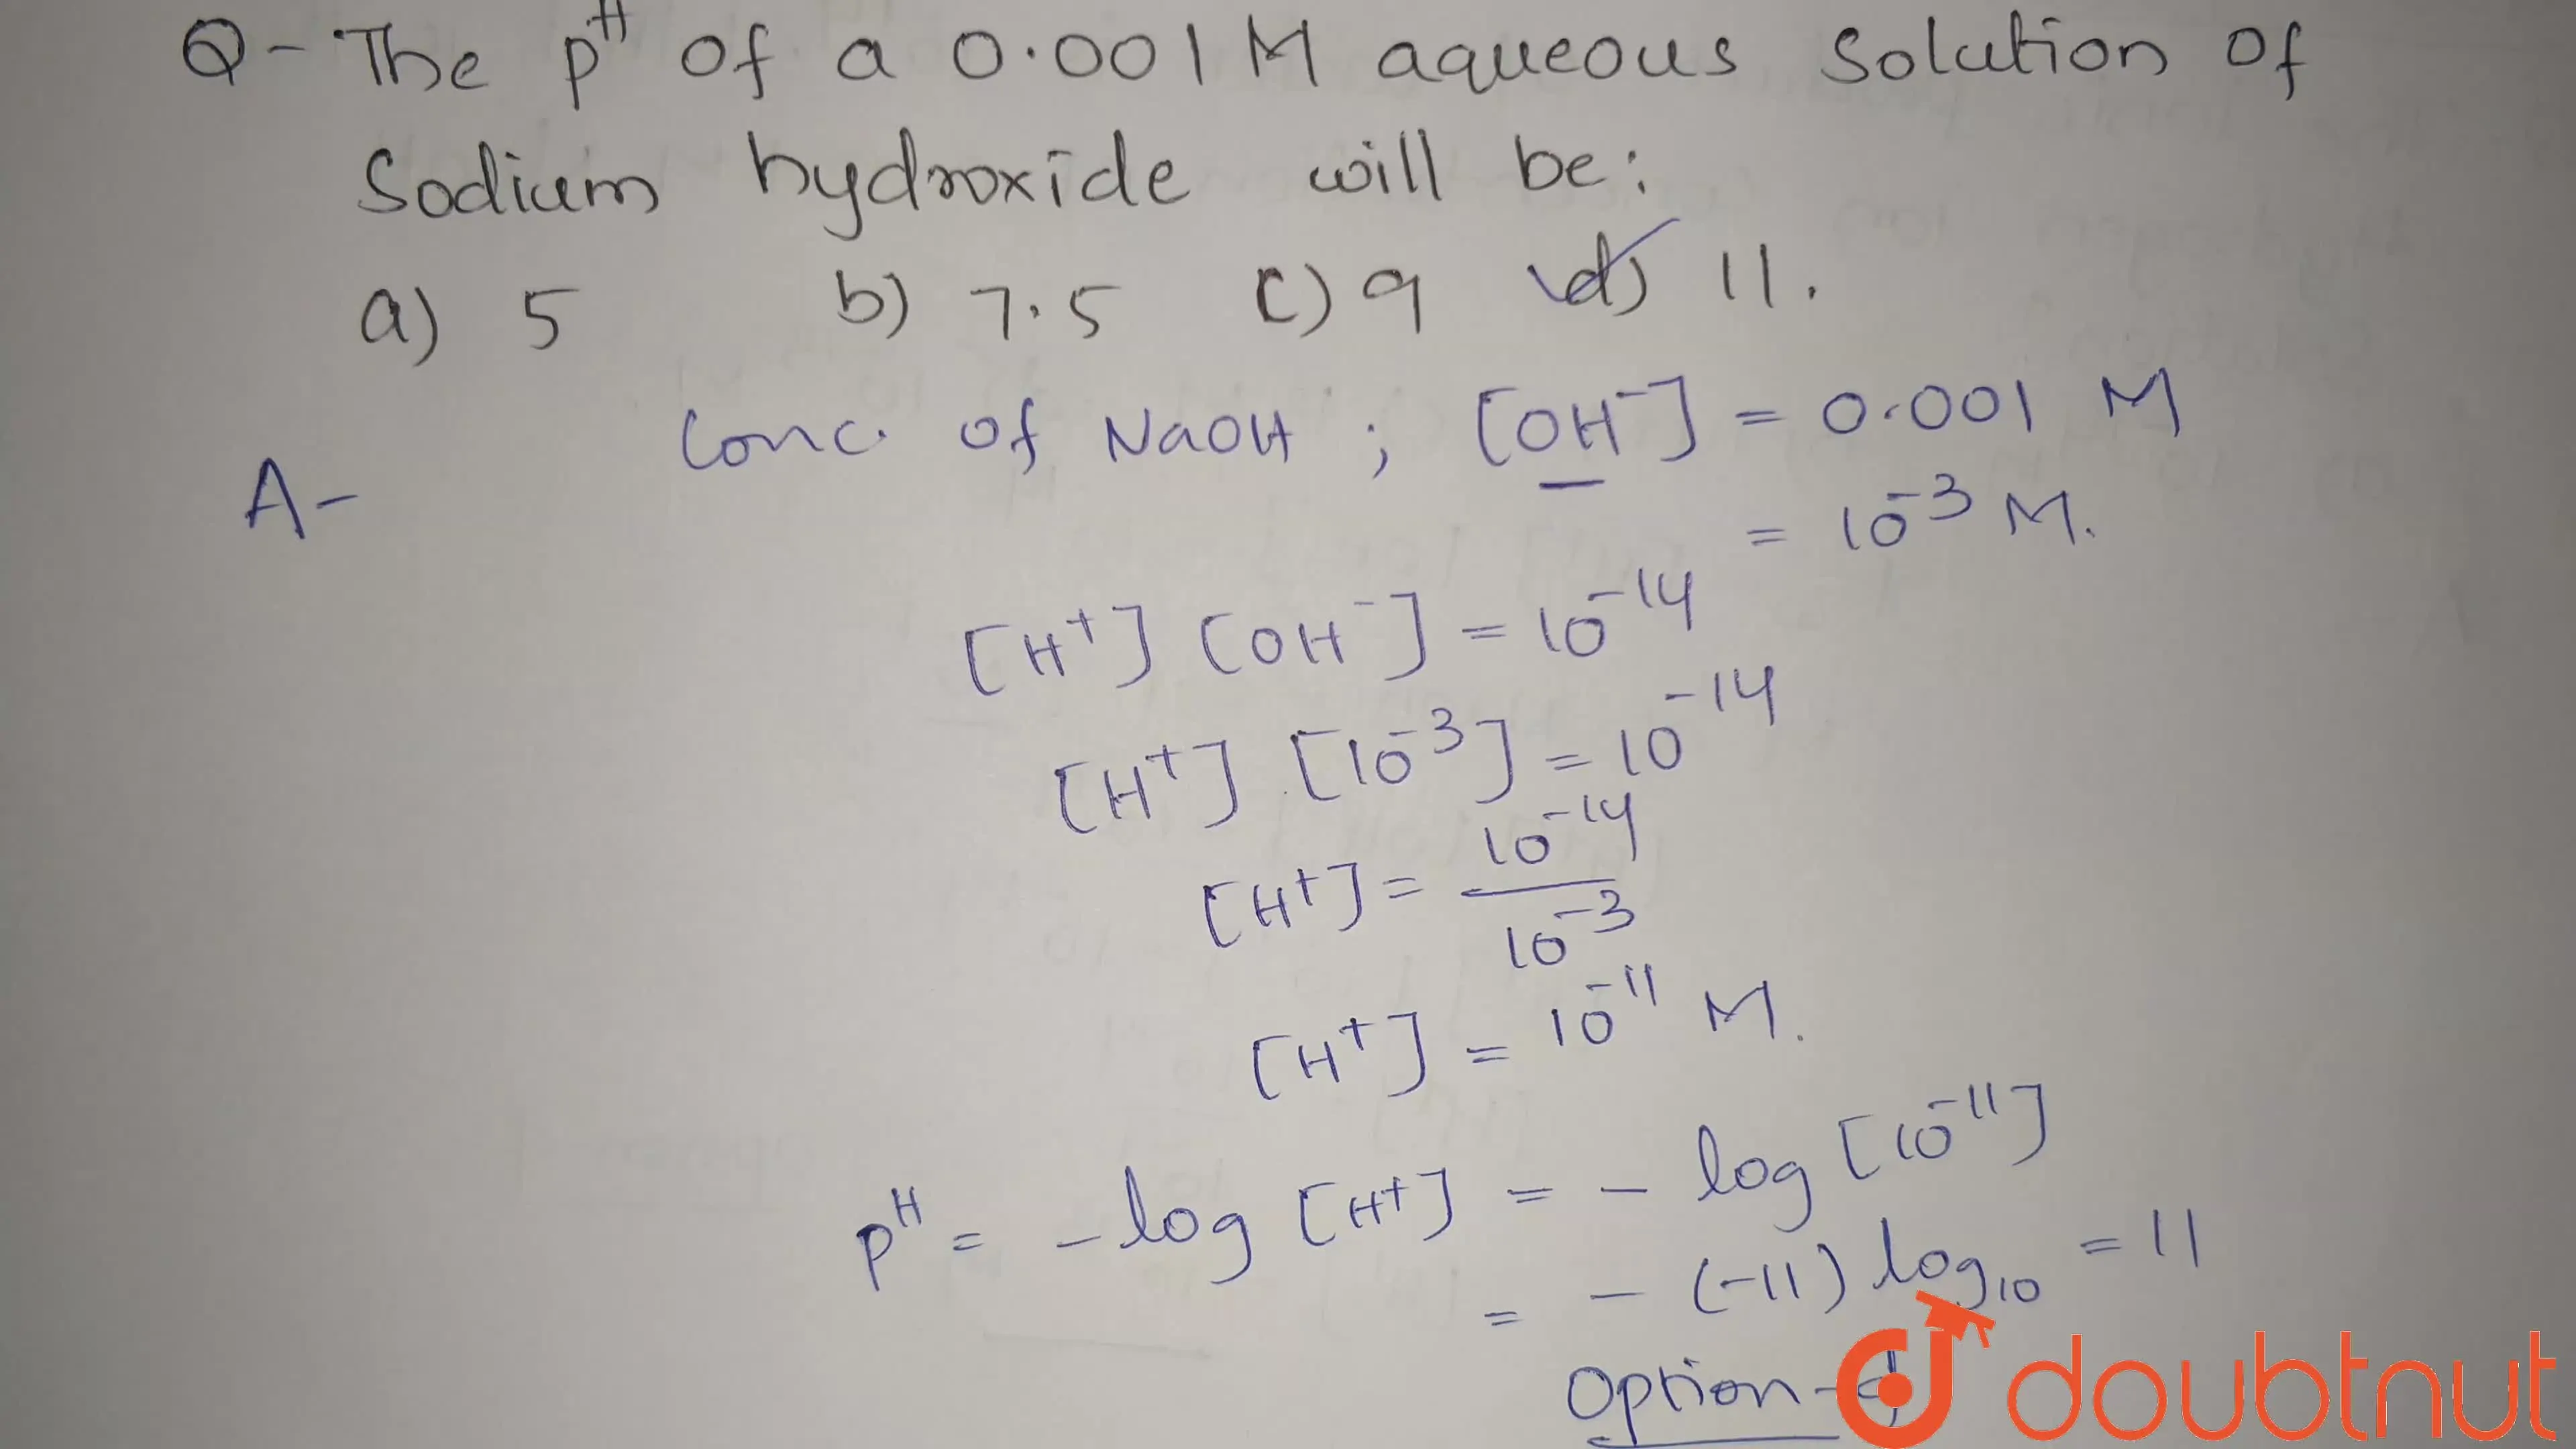 Q- The pH of a 0.001 M aqueous solution of
Sodium hydroxide will be:
a) 5 b) 7.5 c) 9 d) 11.
A- Conc. of NaOH ; [OH⁻] = 0.001 M
= 10⁻³ M.
[H⁺] [OH⁻] = 10⁻¹⁴
[H⁺] [10⁻³] = 10⁻¹⁴
[H⁺] = 10⁻¹⁴ / 10⁻³
[H⁺] = 10⁻¹¹ M.
pH = - log [H⁺] = - log [10⁻¹¹]
= - (-11) log₁₀ = 11
Option - d
doubtnut